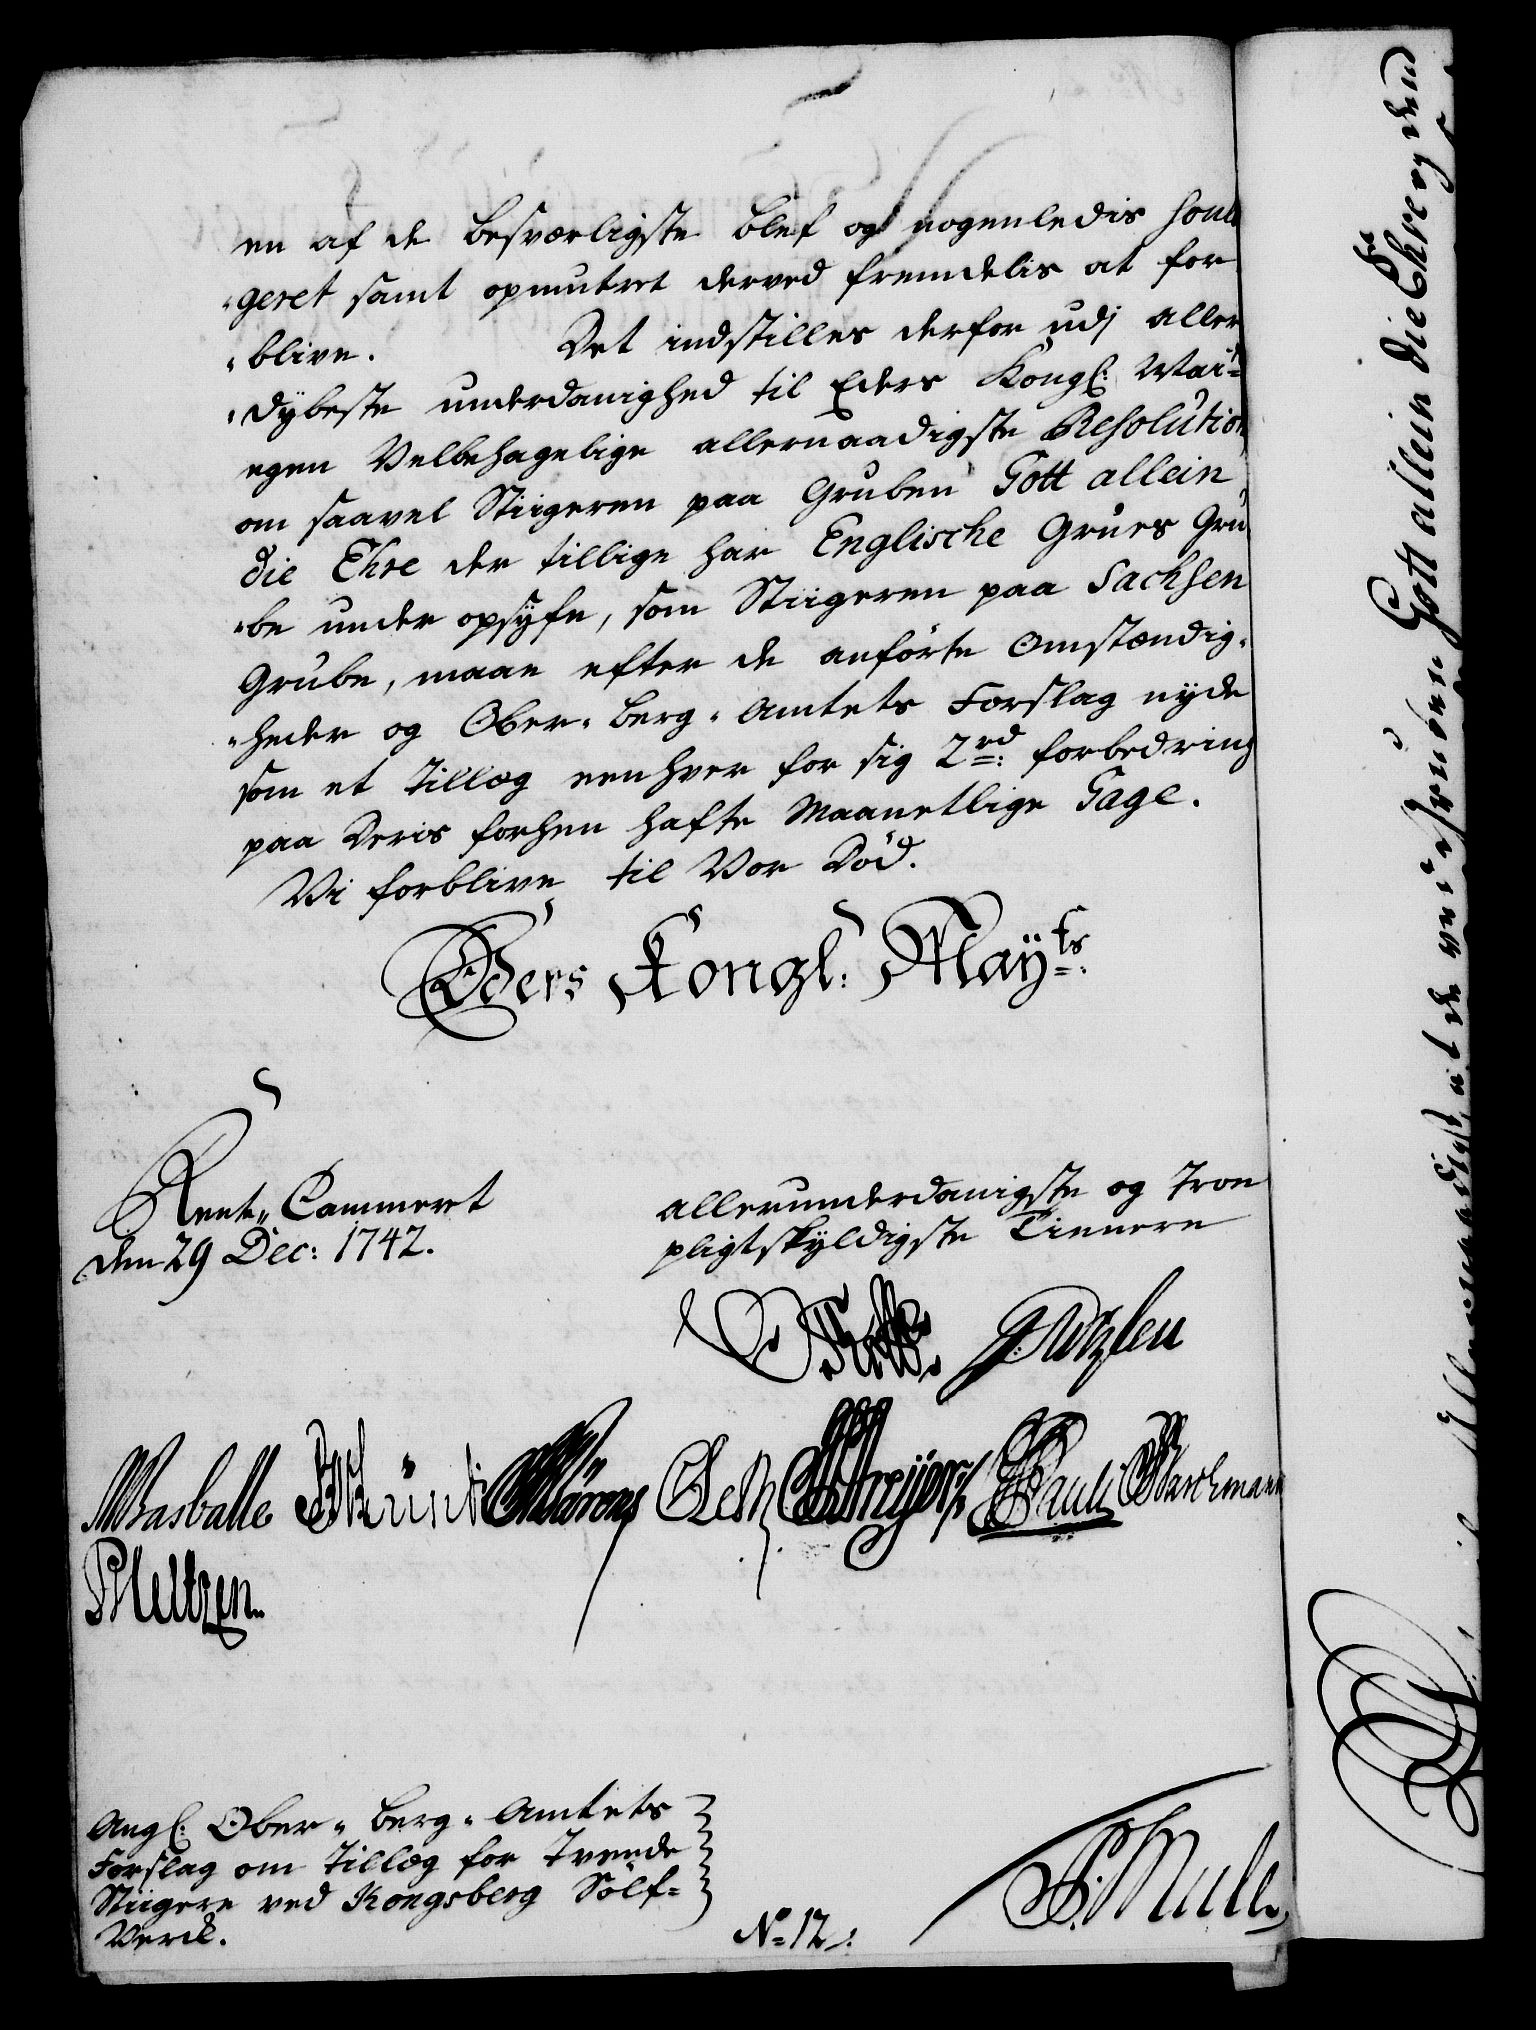 en af de besværligste blef og nogenledis sou
„geret samt opmuntret derved fremdelis at for
„blive. Det indstilles derfor udj aller
„dybeste underdanighed til Eders Kongl: May:ts
egen Velbehagelige allernaadigste Resolution
om saavel Stiigeren paa Gruben Gott allein
die Ehre der tillige har Englische Grues Gru
„be under opsyn, som Stiigeren paa Sachsen
Grube, maae efter de anførte Omstændig„
„heder og Ober„Berg„Amtets Forslag nyde
som et Tillæg eenhver for sig 2 rd: forbedring
paa Deris forhen hafte Maanetlige Gage.
Vi forblive til Vor Död.
Eders Kongl: May:ts
Rente„Cammeret
den 29 Dec: 1742.
allerunderdanigste og Troe
pligtskyldigste Tienere
Wasballe Pauli Barchmann
PMeltzen
Angl: Ober„Berg„Amtets
Forslag om Tillæg for Tvende
Stiigere ved Kongsberg Sölf=
Verck.
No 12.
Mule
Gott allein die Ehre og den